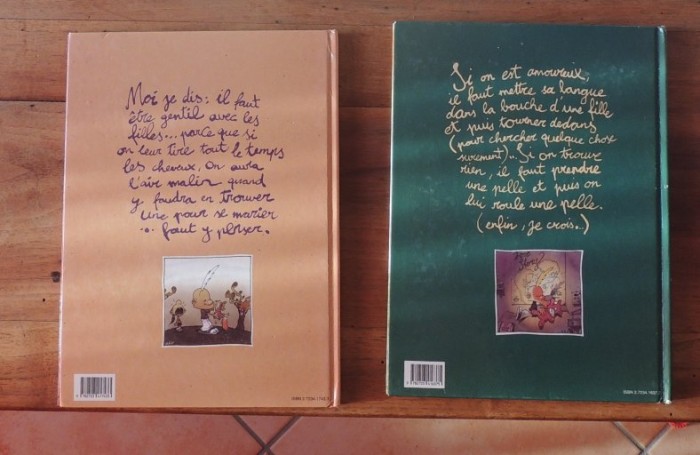 Moi je dis : il faut
être gentil avec les
filles... parce que si
on leur tire tout le temps
les cheveux, on aura
l'air malin quand
y faudra en trouver
une pour se marier
... faut y penser.
Si on est amoureux,
il faut mettre sa langue
dans la bouche d'une fille
et puis tourner dedans
(pour chercher quelque chose
surement)... Si on trouve
rien, il faut prendre
une pelle et puis on
lui roule une pelle.
(enfin, je crois...)